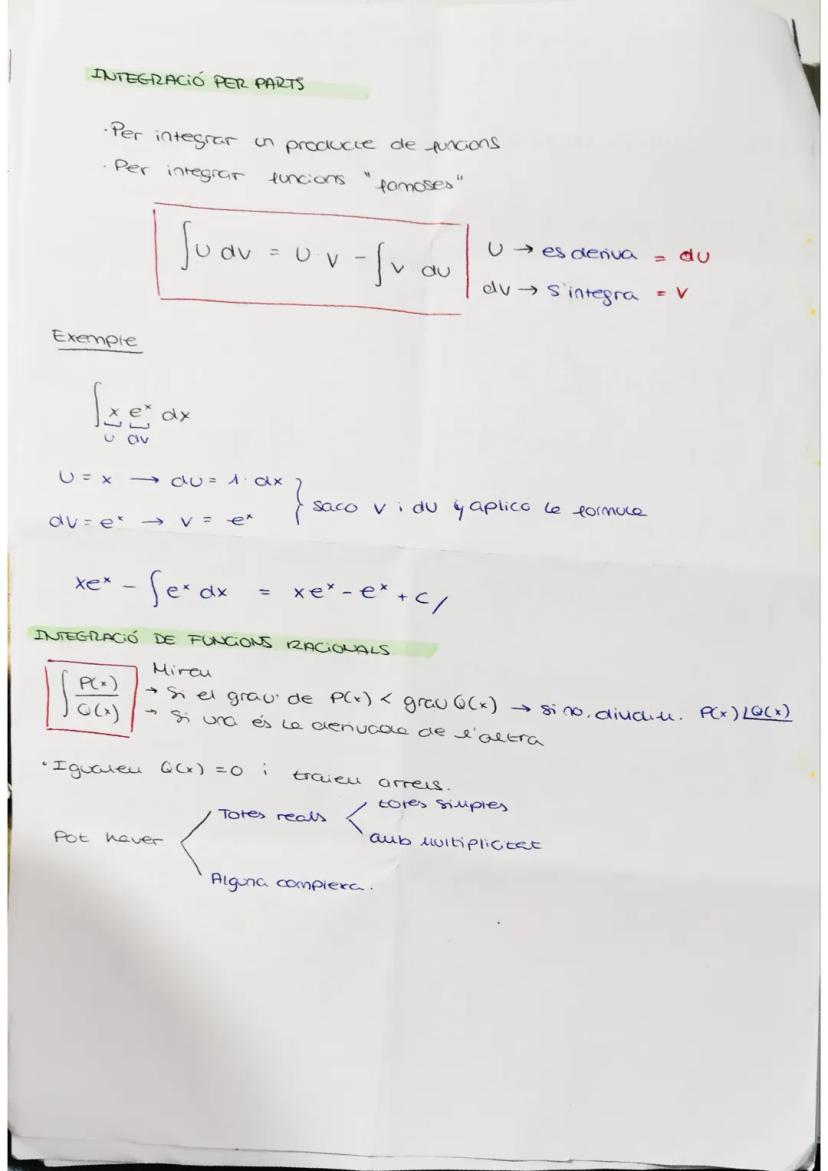 INTEGRACIÓ PER PARTS
· Per integrar un producte de funcions
· Per integrar funcions "famoses"
∫u dv = u·v - ∫v·du
u → es deriva = du
dv → s'integra = v
Exemple
∫x e^x dx
u dv
u = x → du = 1·dx
dv = e^x → v = e^x
} saco v i du y aplico la formula
xe^x - ∫e^x dx = xe^x - e^x + c/
INTEGRACIÓ DE FUNCIONS RACIONALS
∫P(x)/Q(x)
Mireu
→ Si el grau de P(x) < grau Q(x) → si no, dividiu. P(x) ⌊Q(x)
→ Si una és la derivada de l'altra
· Igualeu Q(x) = 0 i traieu arrels.
Pot haver
Totes reals
totes simples
amb multiplicitat
Alguna complexa.